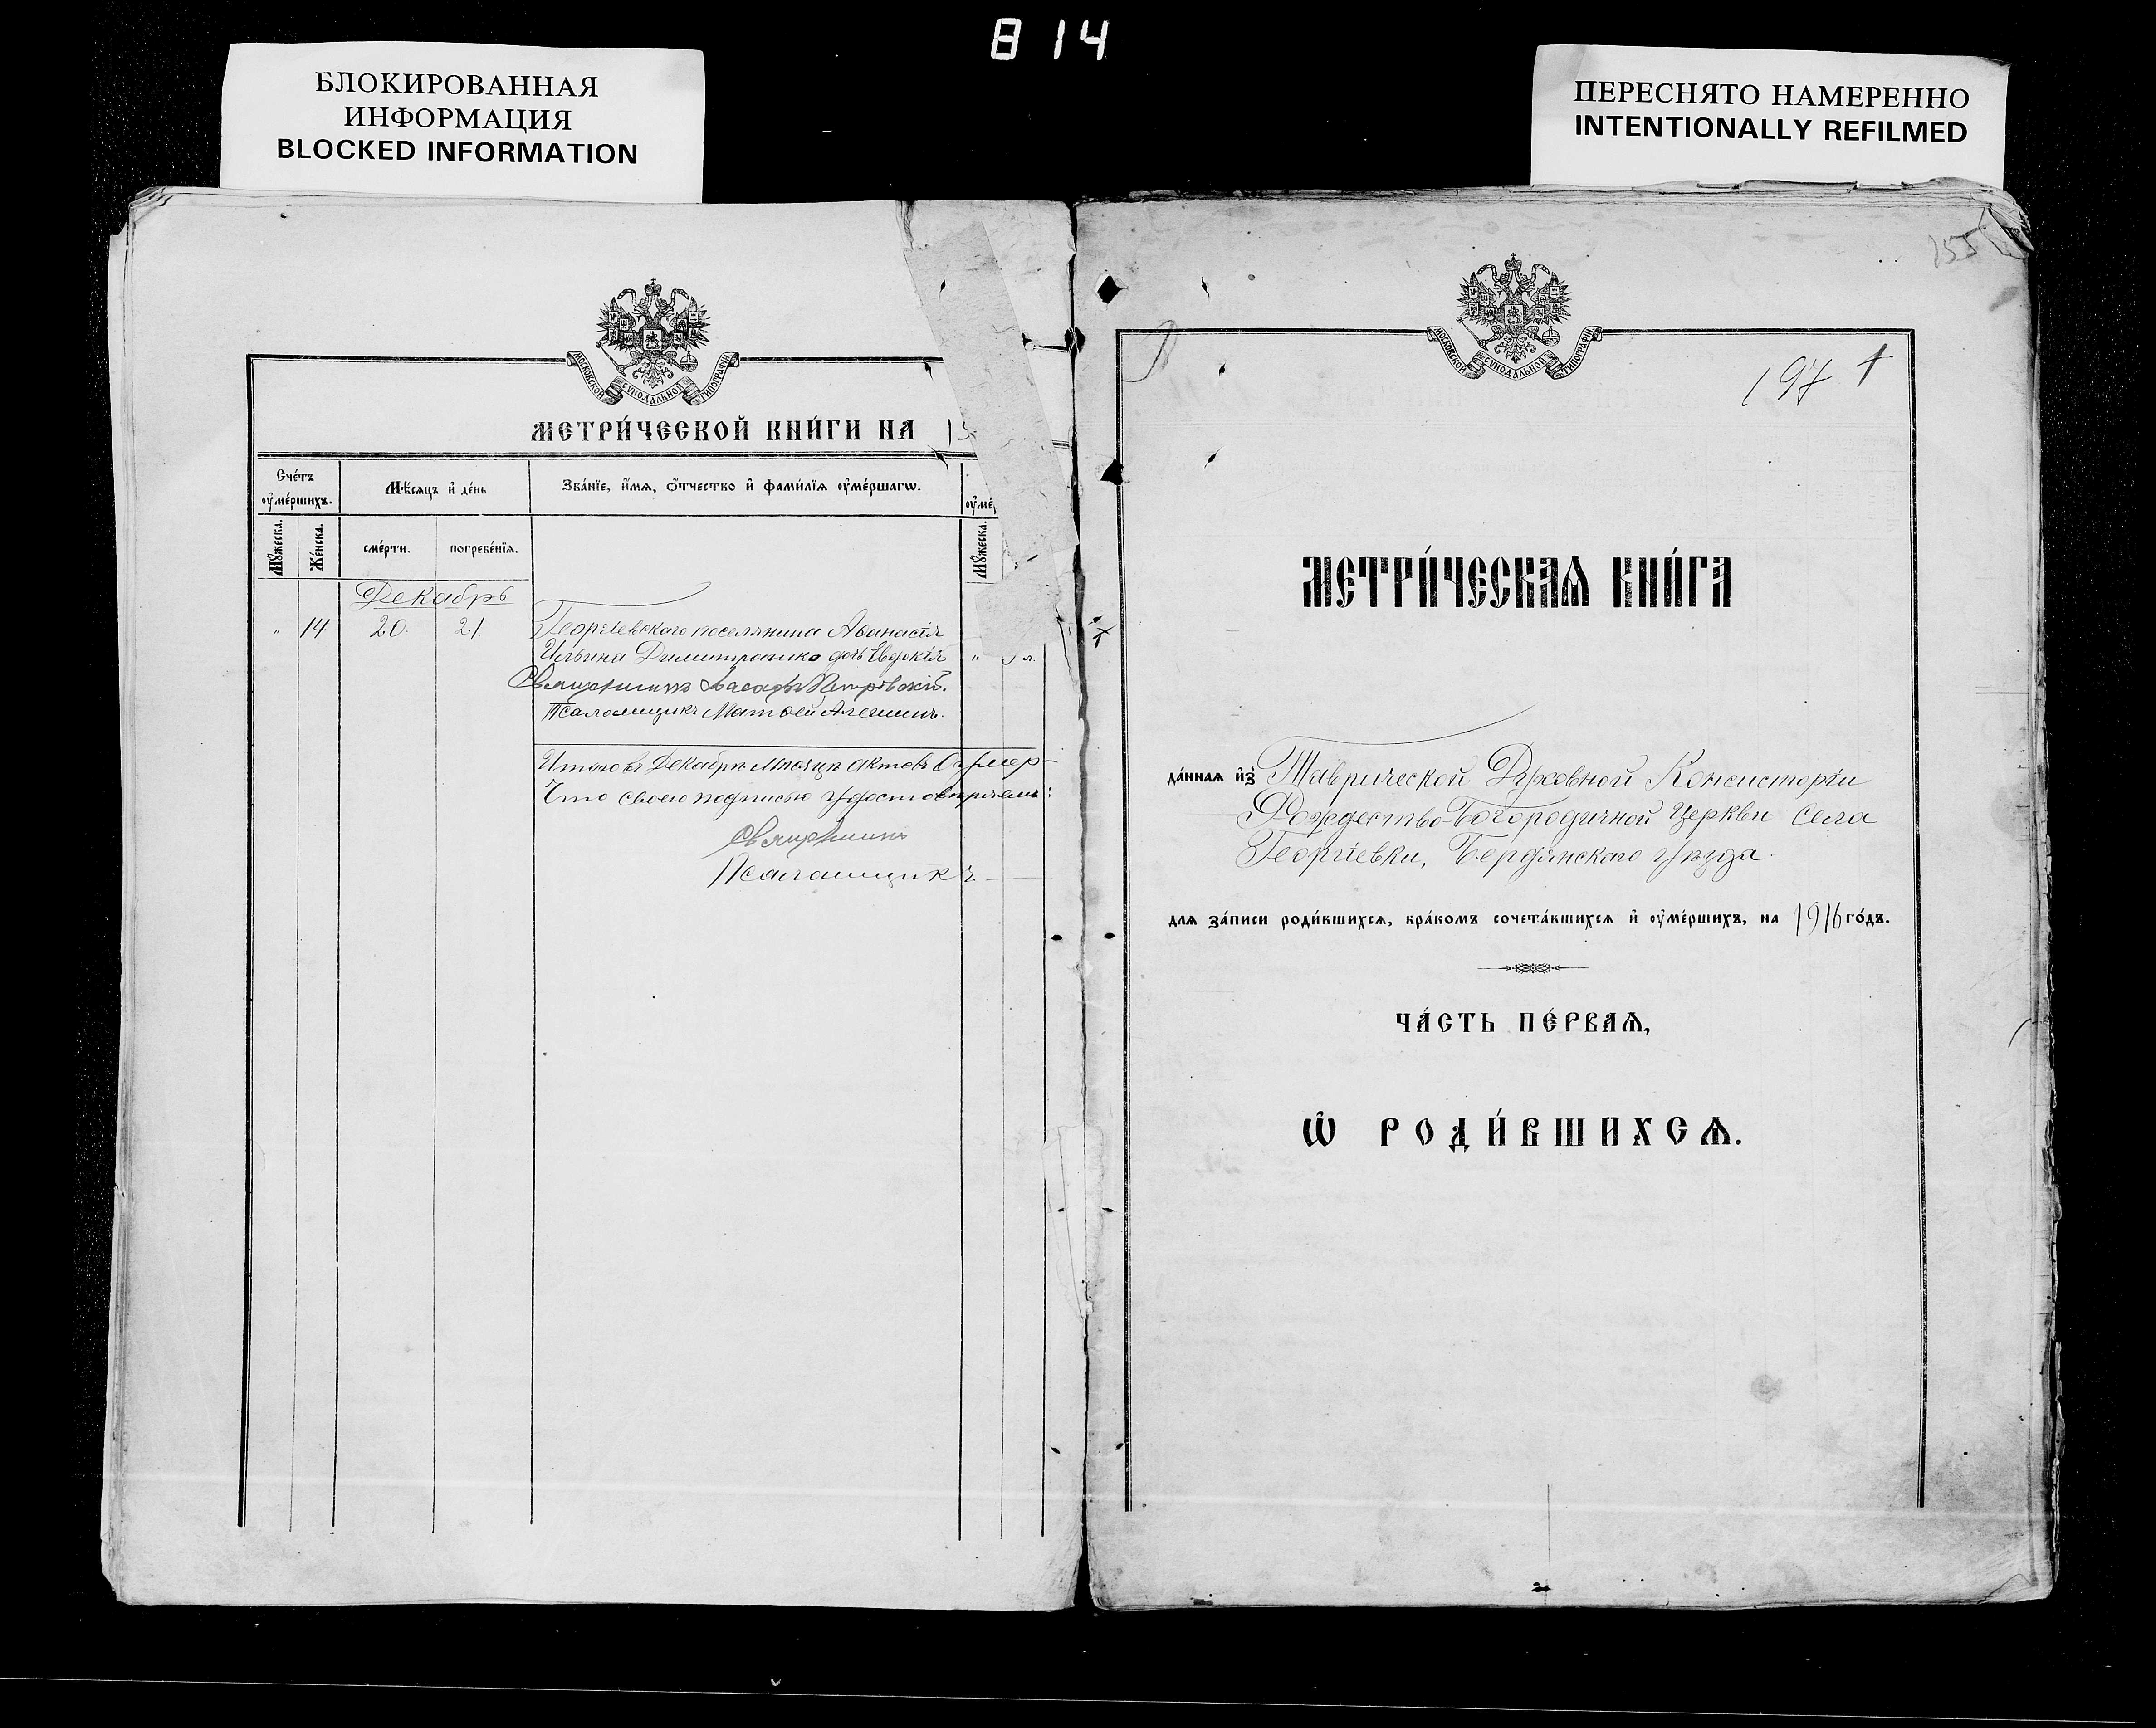 814
БЛОКИРОВАННАЯ
ИНФОРМАЦИЯ
BLOCKED INFORMATION
ПЕРЕСНЯТО НАМЕРЕННО
INTENTIONALLY REFILMED
МОСКОВСКОЙ СѴНОДАЛЬНОЙ ТИПОГРАФІИ
МЕТРИ́ЧЕСКОЙ КНИ́ГИ НА 1
Сче́тъ
ᲂу҆ме́ршихъ.
Мѣ́сяцъ и҆ де́нь
Зва́нїе, и҆́мѧ, ѻ҆́тчество и҆ фами́лїѧ ᲂу҆ме́ршагѡ.
ᲂу҆ме́
Мꙋ́жеска.
Же́нска.
сме́рти.
погребе́нїѧ.
Мꙋ́жеска.
Декабрь
" 14 20. 21. Георгіевскаго поселянина Аѳанасія
Ильина Димитренко дочь Евдокія "
Священникъ Петровскій.
Псаломщикъ Матѳей
Итого въ Декабрѣ мѣсяцѣ актовъ умер-
Что своею подписью удостовѣряемъ:
Священникъ
Псаломщикъ
155
МОСКОВСКОЙ СѴНОДАЛЬНОЙ ТИПОГРАФІИ
197 1
МЕТРИ́ЧЕСКАѦ КНИ́ГА
да́ннаѧ и҆з̾ Таврической Духовной Консисторіи
Рождество-Богородичной Церкви села
Георгіевки, Бердянскаго уѣзда.
длѧ за́писи роди́вшихсѧ, бра́комъ сочета́вшихсѧ и҆ ᲂу҆ме́ршихъ, на 1916 го́дъ.
ЧА́СТЬ ПЕ́РВАѦ,
Ѽ РОДИ́ВШИХСѦ.